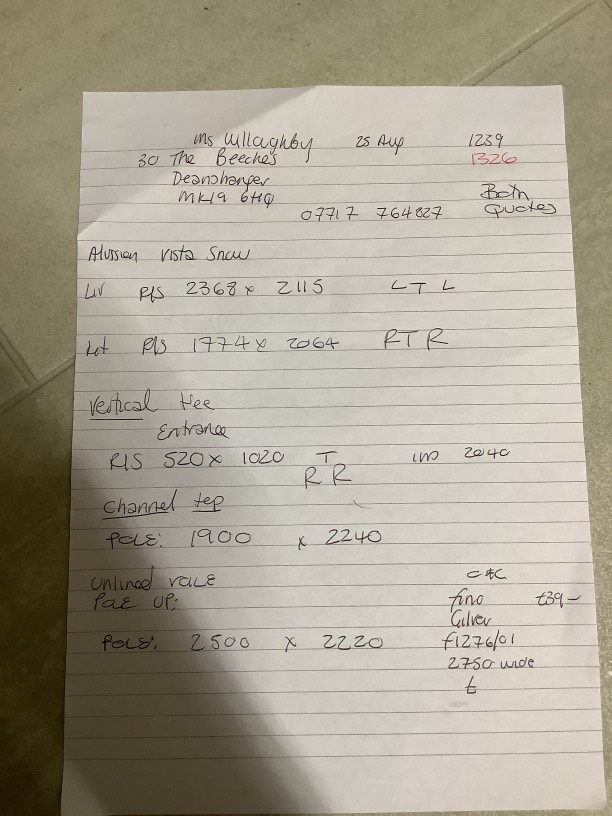 Ms Willaghby 25 Aug 1239
30 The Beeches 1326
Deanshanger
MK19 6HQ Both
07717 764827 Quotes
Vista Snow
Liv R/S 2368 x 2115 L T L
R/S 1774 x 2064 R T R
Vertical Hee
Entrance
R/S 520 x 1020 T 2040
R R
Channel tep
Pole: 1900 x 2240
Unlined C&C
Pole up: fino £39-
Pole: 2500 x 2220 f1276/01
2750 wide
£